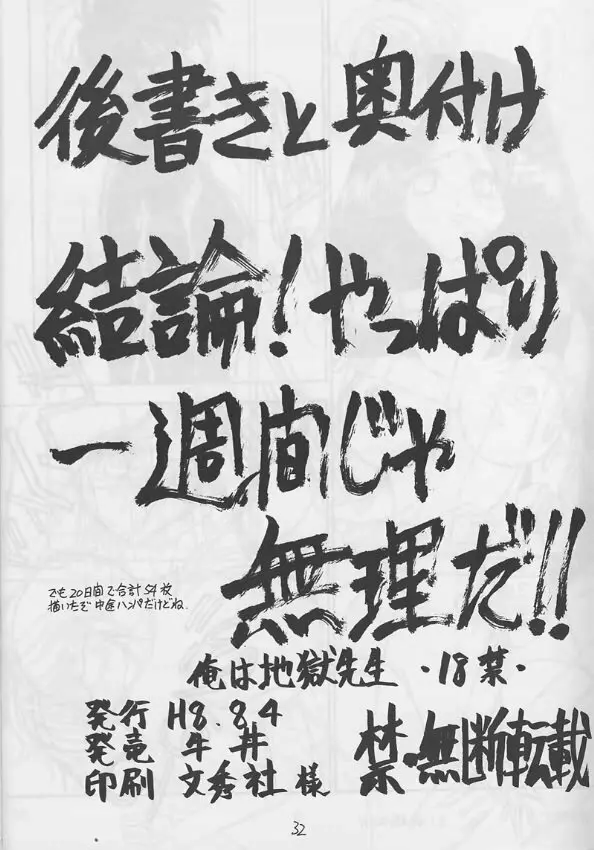 後書きと奥付け
結論!やっぱり
一週間じゃ
無理だ!!
でも20日間で合計54枚
描いたぞ中途ハンパだけどね.
俺は地獄先生 ・18禁・
発行 H8.8.4
発竜 牛丼
印刷 文秀社様
禁・無断転載
32